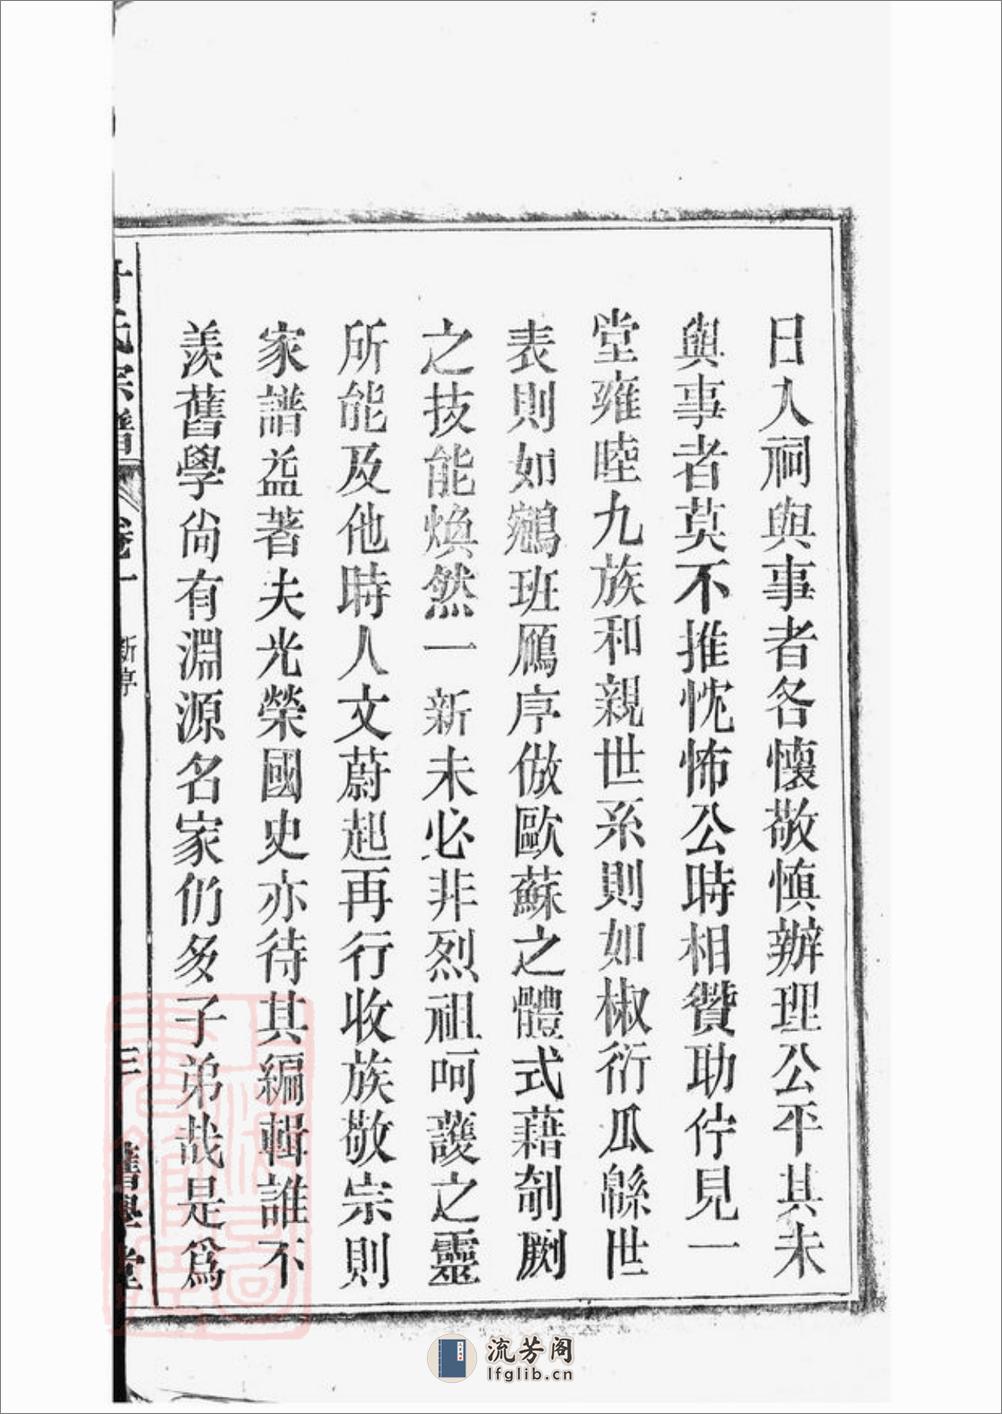 日入祠與事者各懷敬慎辦理公平其未
與事者莫不推忱怖公時相贊助佇見一
堂雍睦九族和親世系則如椒衍瓜緜世
表則如鵷班鴈序倣歐蘇之體式藉剞劂
之技能煥然一新未必非烈祖呵護之靈
所能及他時人文蔚起再行收族敬宗則
家譜益著夫光榮國史亦待其編輯誰不
羨舊學尙有淵源名家仍多子弟哉是爲
氏宗譜 卷一 新序 三 舊學堂
流芳阁
lfglib.cn